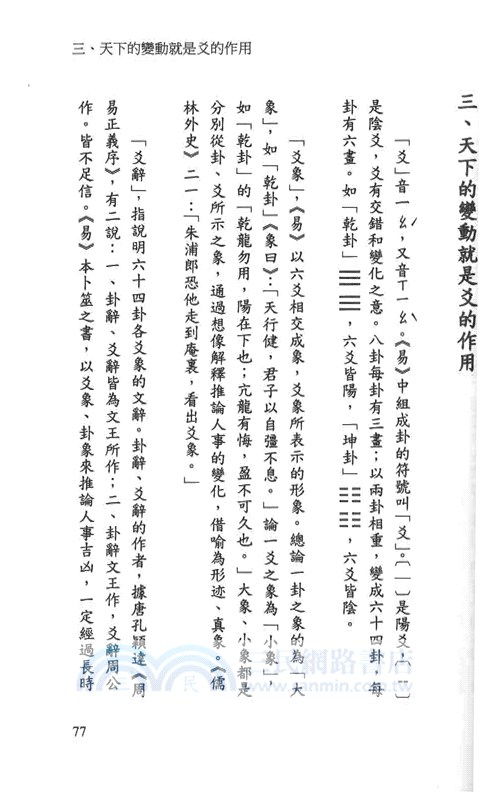 三、天下的變動就是爻的作用
三、天下的變動就是爻的作用
「爻」音ㄧㄠˊ,又音ㄒㄧㄠˋ。《易》中組成卦的符號叫「爻」。〔—〕是陽爻〔--〕
是陰爻,爻有交錯和變化之意。八卦每卦有三畫;以兩卦相重,變成六十四卦,每
卦有六畫。如「乾卦」☰☰,六爻皆陽,「坤卦」☷☷,六爻皆陰。
「爻象」,《易》以六爻相交成象,爻象所表示的形象。總論一卦之象的為「大
象」,如「乾卦」《象曰》:「天行健,君子以自彊不息。」論一爻之象為「小象」,
如「乾卦」的「乾龍勿用,陽在下也;亢龍有悔,盈不可久也。」大象、小象都是
分別從卦、爻所示之象,通過想像解釋推論人事的變化,借喻為形迹、真象。《儒
林外史》二一:「朱浦郎恐他走到庵裏,看出爻象。」
「爻辭」,指說明六十四卦各爻象的文辭。卦辭、爻辭的作者,據唐孔穎達《周
易正義序》,有二說:一、卦辭、爻辭皆為文王所作;二、卦辭文王作,爻辭周公
作。皆不足信。《易》本卜筮之書,以爻象、卦象來推論人事吉凶,一定經過長時
三民網路書店
www.sanmin.com.tw
77